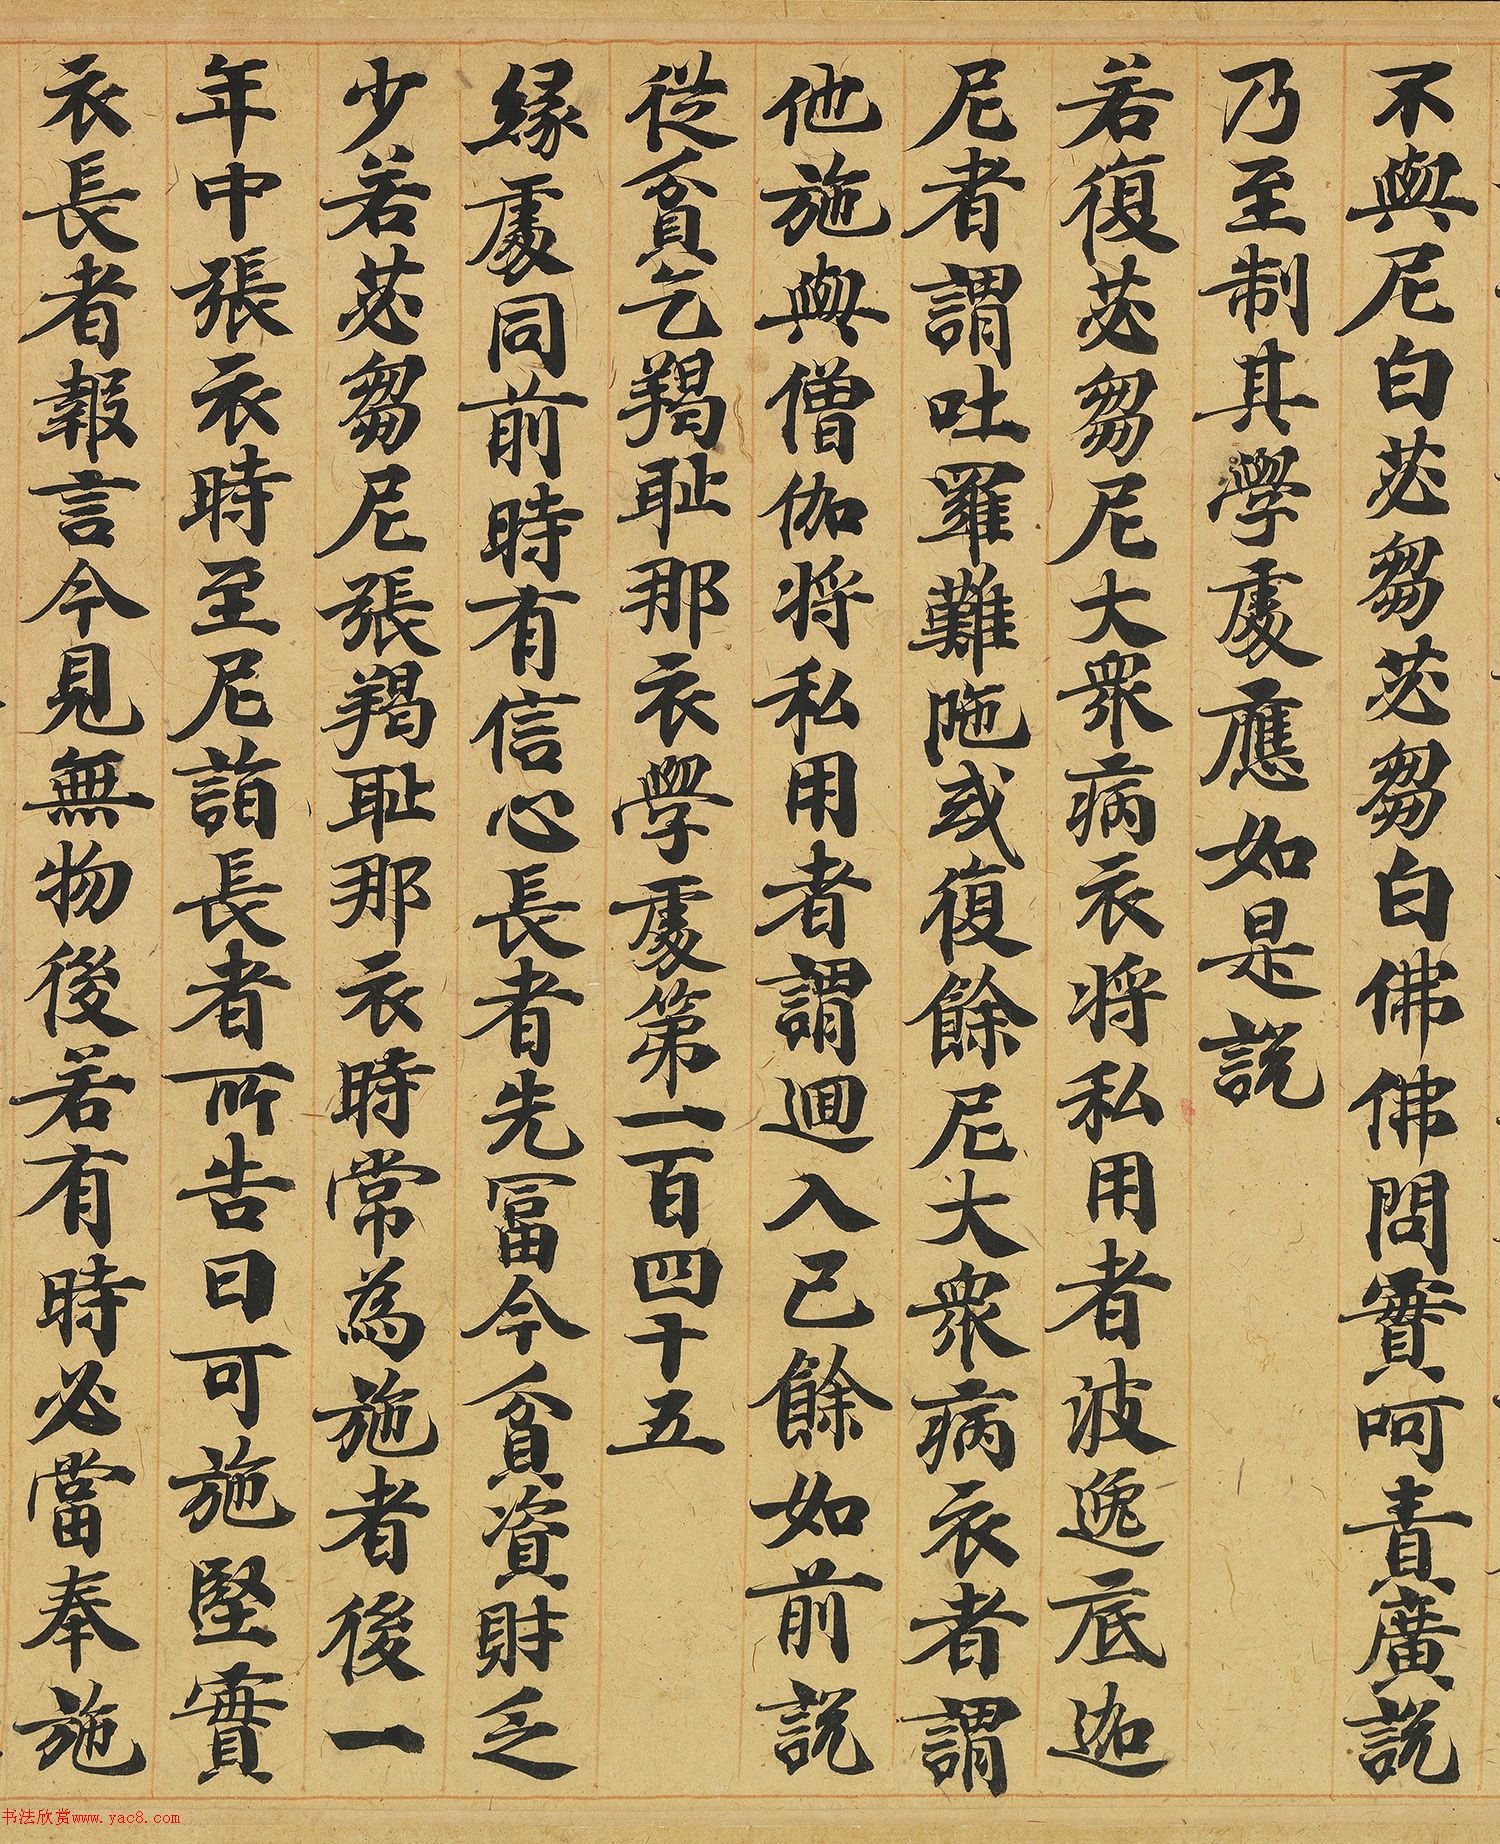 不與尼白苾芻苾芻白佛佛問實呵責廣說
乃至制其學處應如是說
若復苾芻尼大眾病衣將私用者波逸底迦
尼者謂吐羅難陁或復餘尼大眾病衣者謂
他施與僧伽將私用者謂迴入己餘如前說
從貧乞羯耻那衣學處第一百四十五
緣處同前時有信心長者先冨今貧資財乏
少若苾芻尼張羯耻那衣時常為施者後一
年中張衣時至尼詣長者所告曰可施堅實
衣長者報言今見無物後若有時必當奉施
书法欣赏www.yac8.com